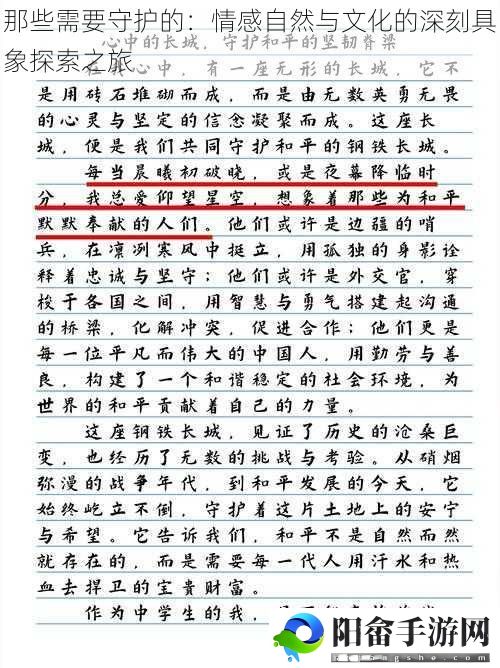 那些需要守护的：情感自然与文化的深刻具
象探索之旅
心中的长城，守护和平的坚韧脊梁
在我心中，有一座无形的长城，它不
是用砖石堆砌而成，而是由无数英勇无畏
的心灵与坚定的信念凝聚而成。这座长
城，便是我们共同守护和平的钢铁长城。
每当晨曦初破晓，或是夜幕降临时
分，我总爱仰望星空，想象着那些为和平
默默奉献的人们。他们或许是边疆的哨
兵，在凛冽寒风中挺立，用孤独的身影诠
释着忠诚与坚守；他们或许是外交官，穿
梭于各国之间，用智慧与勇气搭建起沟通
的桥梁，化解冲突，促进合作；他们更是
每一位平凡而伟大的中国人，用勤劳与善
良，构建了一个和谐稳定的社会环境，为
世界的和平贡献着自己的力量。
这座钢铁长城，见证了历史的沧桑巨
变，也经历了无数的挑战与考验。从硝烟
弥漫的战争年代，到和平发展的今天，它
始终屹立不倒，守护着这片土地上的安宁
与希望。它告诉我们，和平不是自然而然
就存在的，而是需要每一代人用汗水和热
血去捍卫的宝贵财富。
作为中学生的我，
阳畲手游网